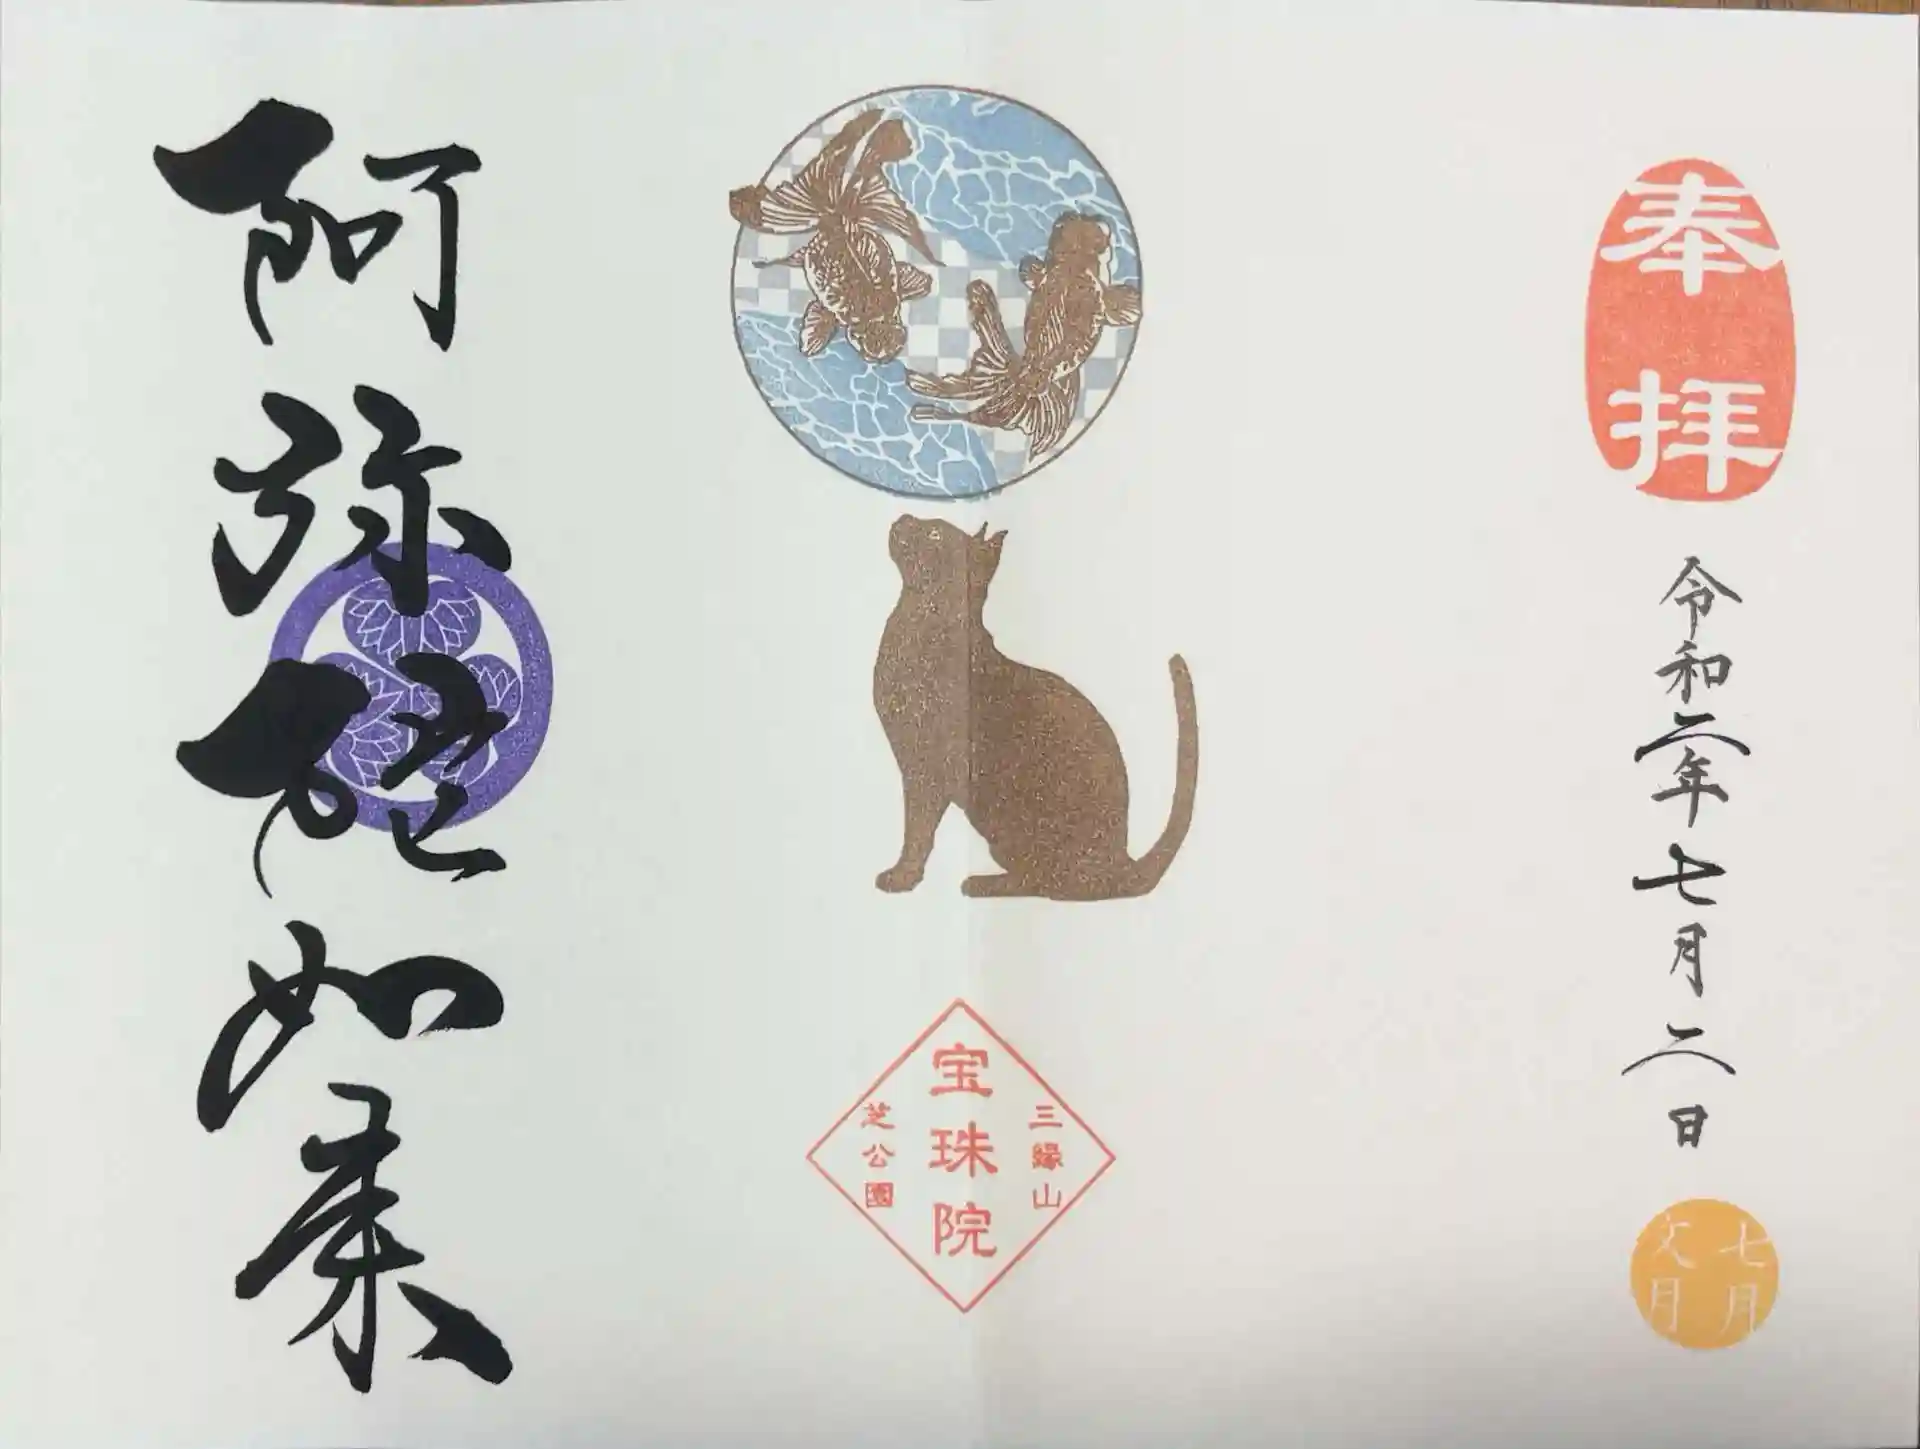 奉拝
令和二年七月二日
七月
文月
三縁山
宝珠院
芝公園
阿弥陀如来